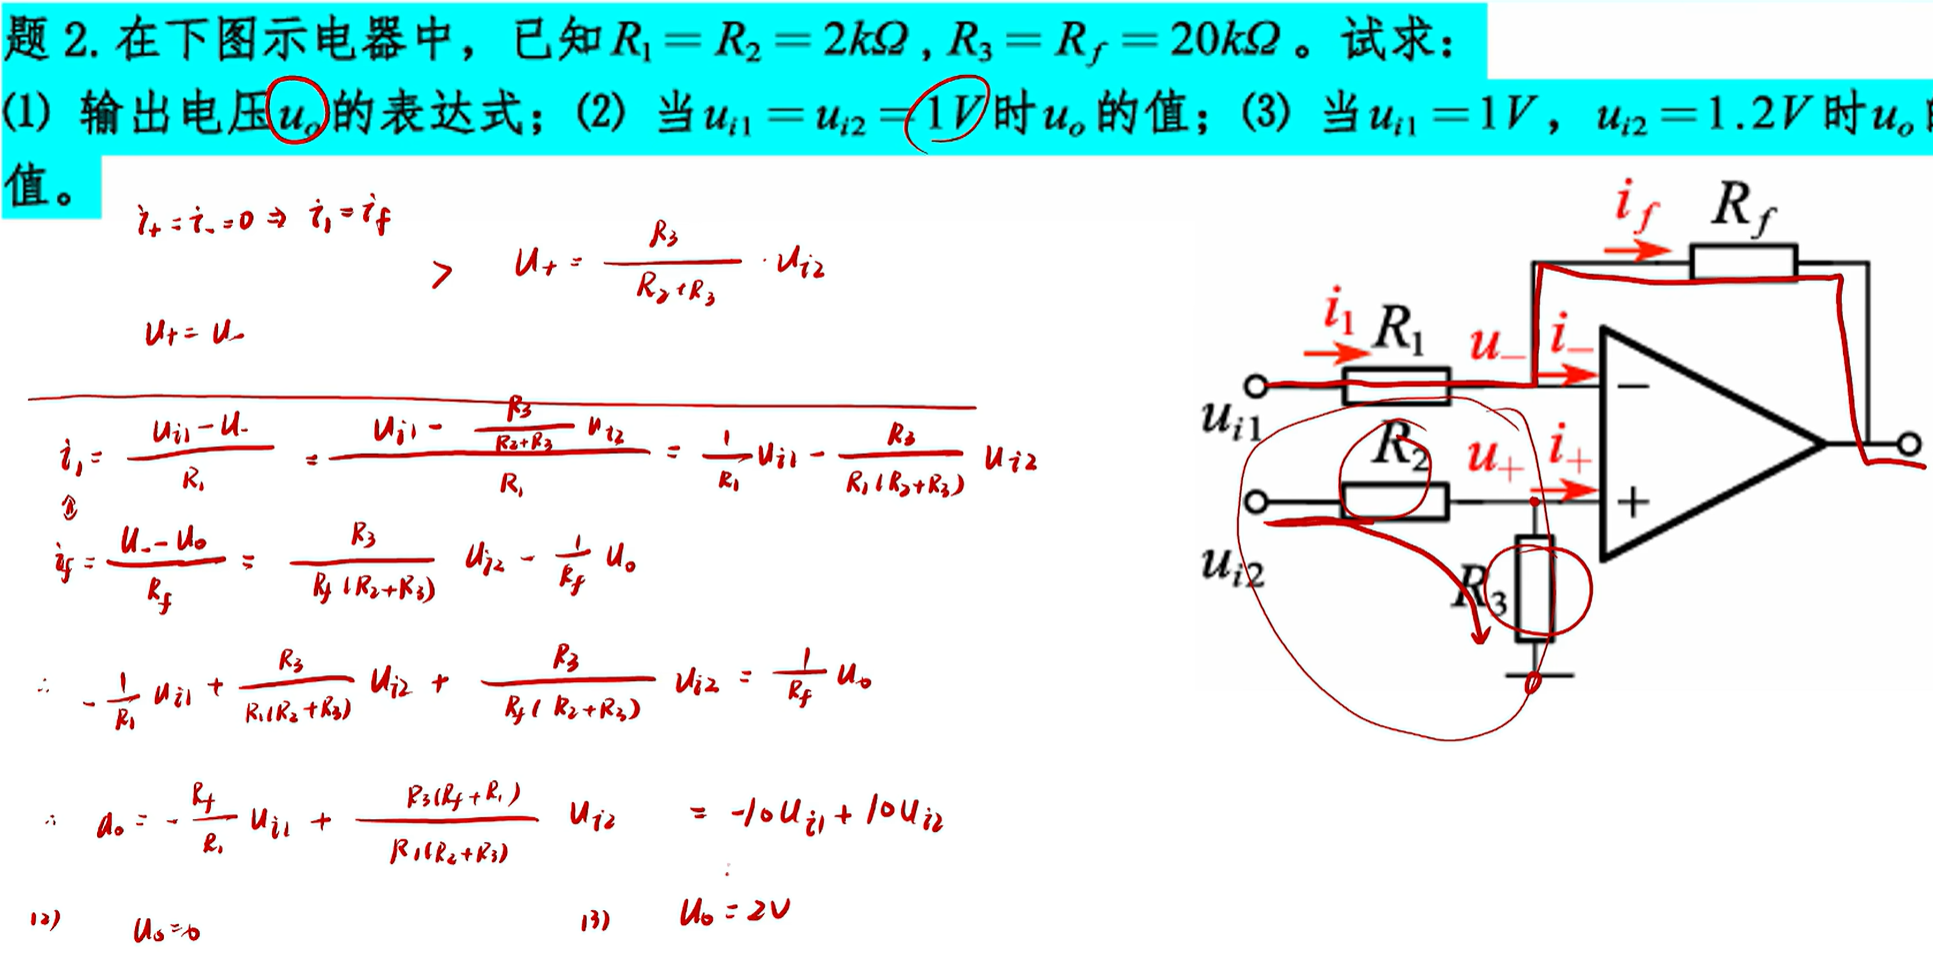 题 2. 在下图示电器中，已知 R₁ = R₂ = 2kΩ , R₃ = R_f = 20kΩ 。试求：
(1) 输出电压 u_o 的表达式；(2) 当 u_i1 = u_i2 = 1V 时 u_o 的值；(3) 当 u_i1 = 1V，u_i2 = 1.2V 时 u_o
值。
i₊ = i₋ = 0 ⇒ i₁ = i_f
> u₊ = R₃/(R₂+R₃) · u_i2
u₊ = u₋
i₁ = (u_i1 - u₋)/R₁ = (u_i1 - R₃/(R₂+R₃) u_i2)/R₁ = 1/R₁ u_i1 - R₃/(R₁(R₂+R₃)) u_i2
i_f = (u₋ - u_o)/R_f = R₃/(R_f(R₂+R₃)) u_i2 - 1/R_f u_o
∴ -1/R₁ u_i1 + R₃/(R₁(R₂+R₃)) u_i2 + R₃/(R_f(R₂+R₃)) u_i2 = 1/R_f u_o
∴ u_o = -R_f/R₁ u_i1 + R₃(R_f+R₁)/(R₁(R₂+R₃)) u_i2 = -10u_i1 + 10u_i2
(2) u_o = 0
(3) u_o = 2V
i_f R_f
i₁ R₁ u₋ i₋
u_i1
−
R₂ u₊ i₊
+
u_i2
R₃